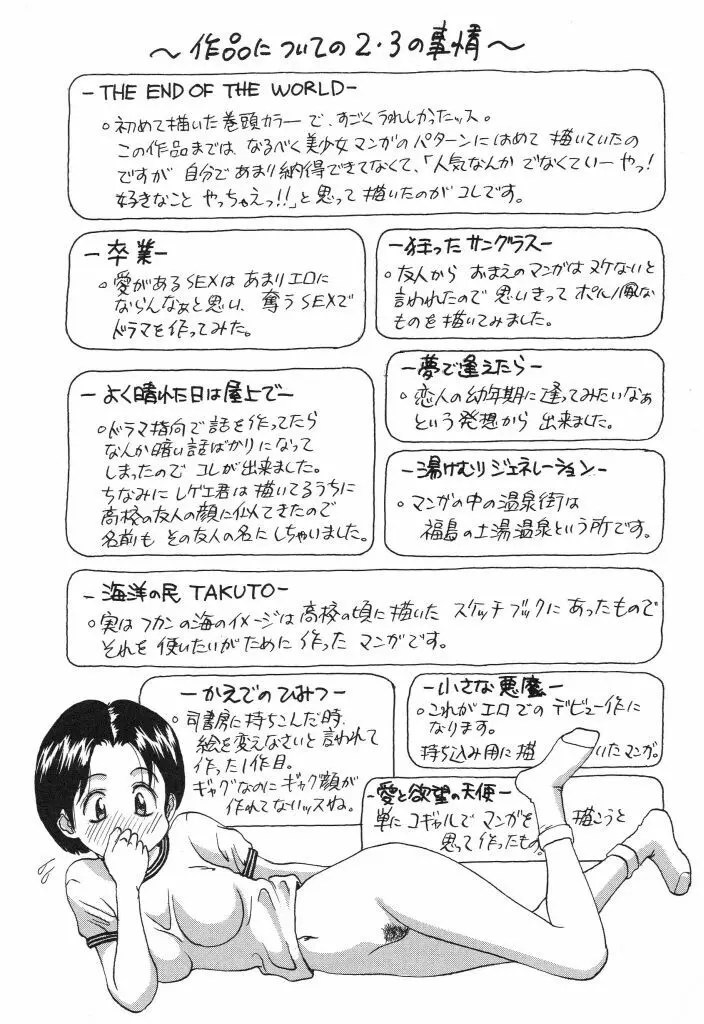 ～作品についての2・3の事情～
-THE END OF THE WORLD-
○初めて描いた巻頭カラーで、すごくうれしかったッス。
この作品までは、なるべく美少女マンガのパターンにはめて描いていたの
ですが自分であまり納得できてなくて、「人気なんかでなくていーやっ!
好きなことやっちゃえっ!!」と思って描いたのがコレです。
-卒業-
○愛があるSEXはあまりエロに
ならんなぁと思い、奪うSEXで
ドラマを作ってみた。
-狂ったサングラス-
○友人からおまえのマンガはヌケないと
言われたので思いきってポルノ風な
ものを描いてみました。
-夢で逢えたら-
○恋人の幼年期に逢ってみたいなぁ
という発想から出来ました。
-よく晴れた日は屋上で-
○ドラマ指向で話を作ってたら
なんか暗い話ばかりになって
しまったのでコレが出来ました。
ちなみにレゲエ君は描いてるうちに
高校の友人の顔に似てきたので
名前もその友人の名にしちゃいました。
-湯けむりジェネレーション-
○マンガの中の温泉街は
福島の土湯温泉という所です。
-海洋の民 TAKUTO-
○実はフカンの海のイメージは高校の頃に描いたスケッチブックにあったもので
それを使いたいがために作ったマンガです。
-かえでのひみつ-
○司書房に持ちこんだ時、
絵を変えなさいと言われて
作った1作目。
ギャグなのにギャグ顔が
作れてないッスね。
-小さな悪魔-
○これがエロでのデビュー作に
なります。
持ち込み用に描いたマンガ。
-愛と欲望の天使-
単にコギャルでマンガを描こうと
思って作ったもの。